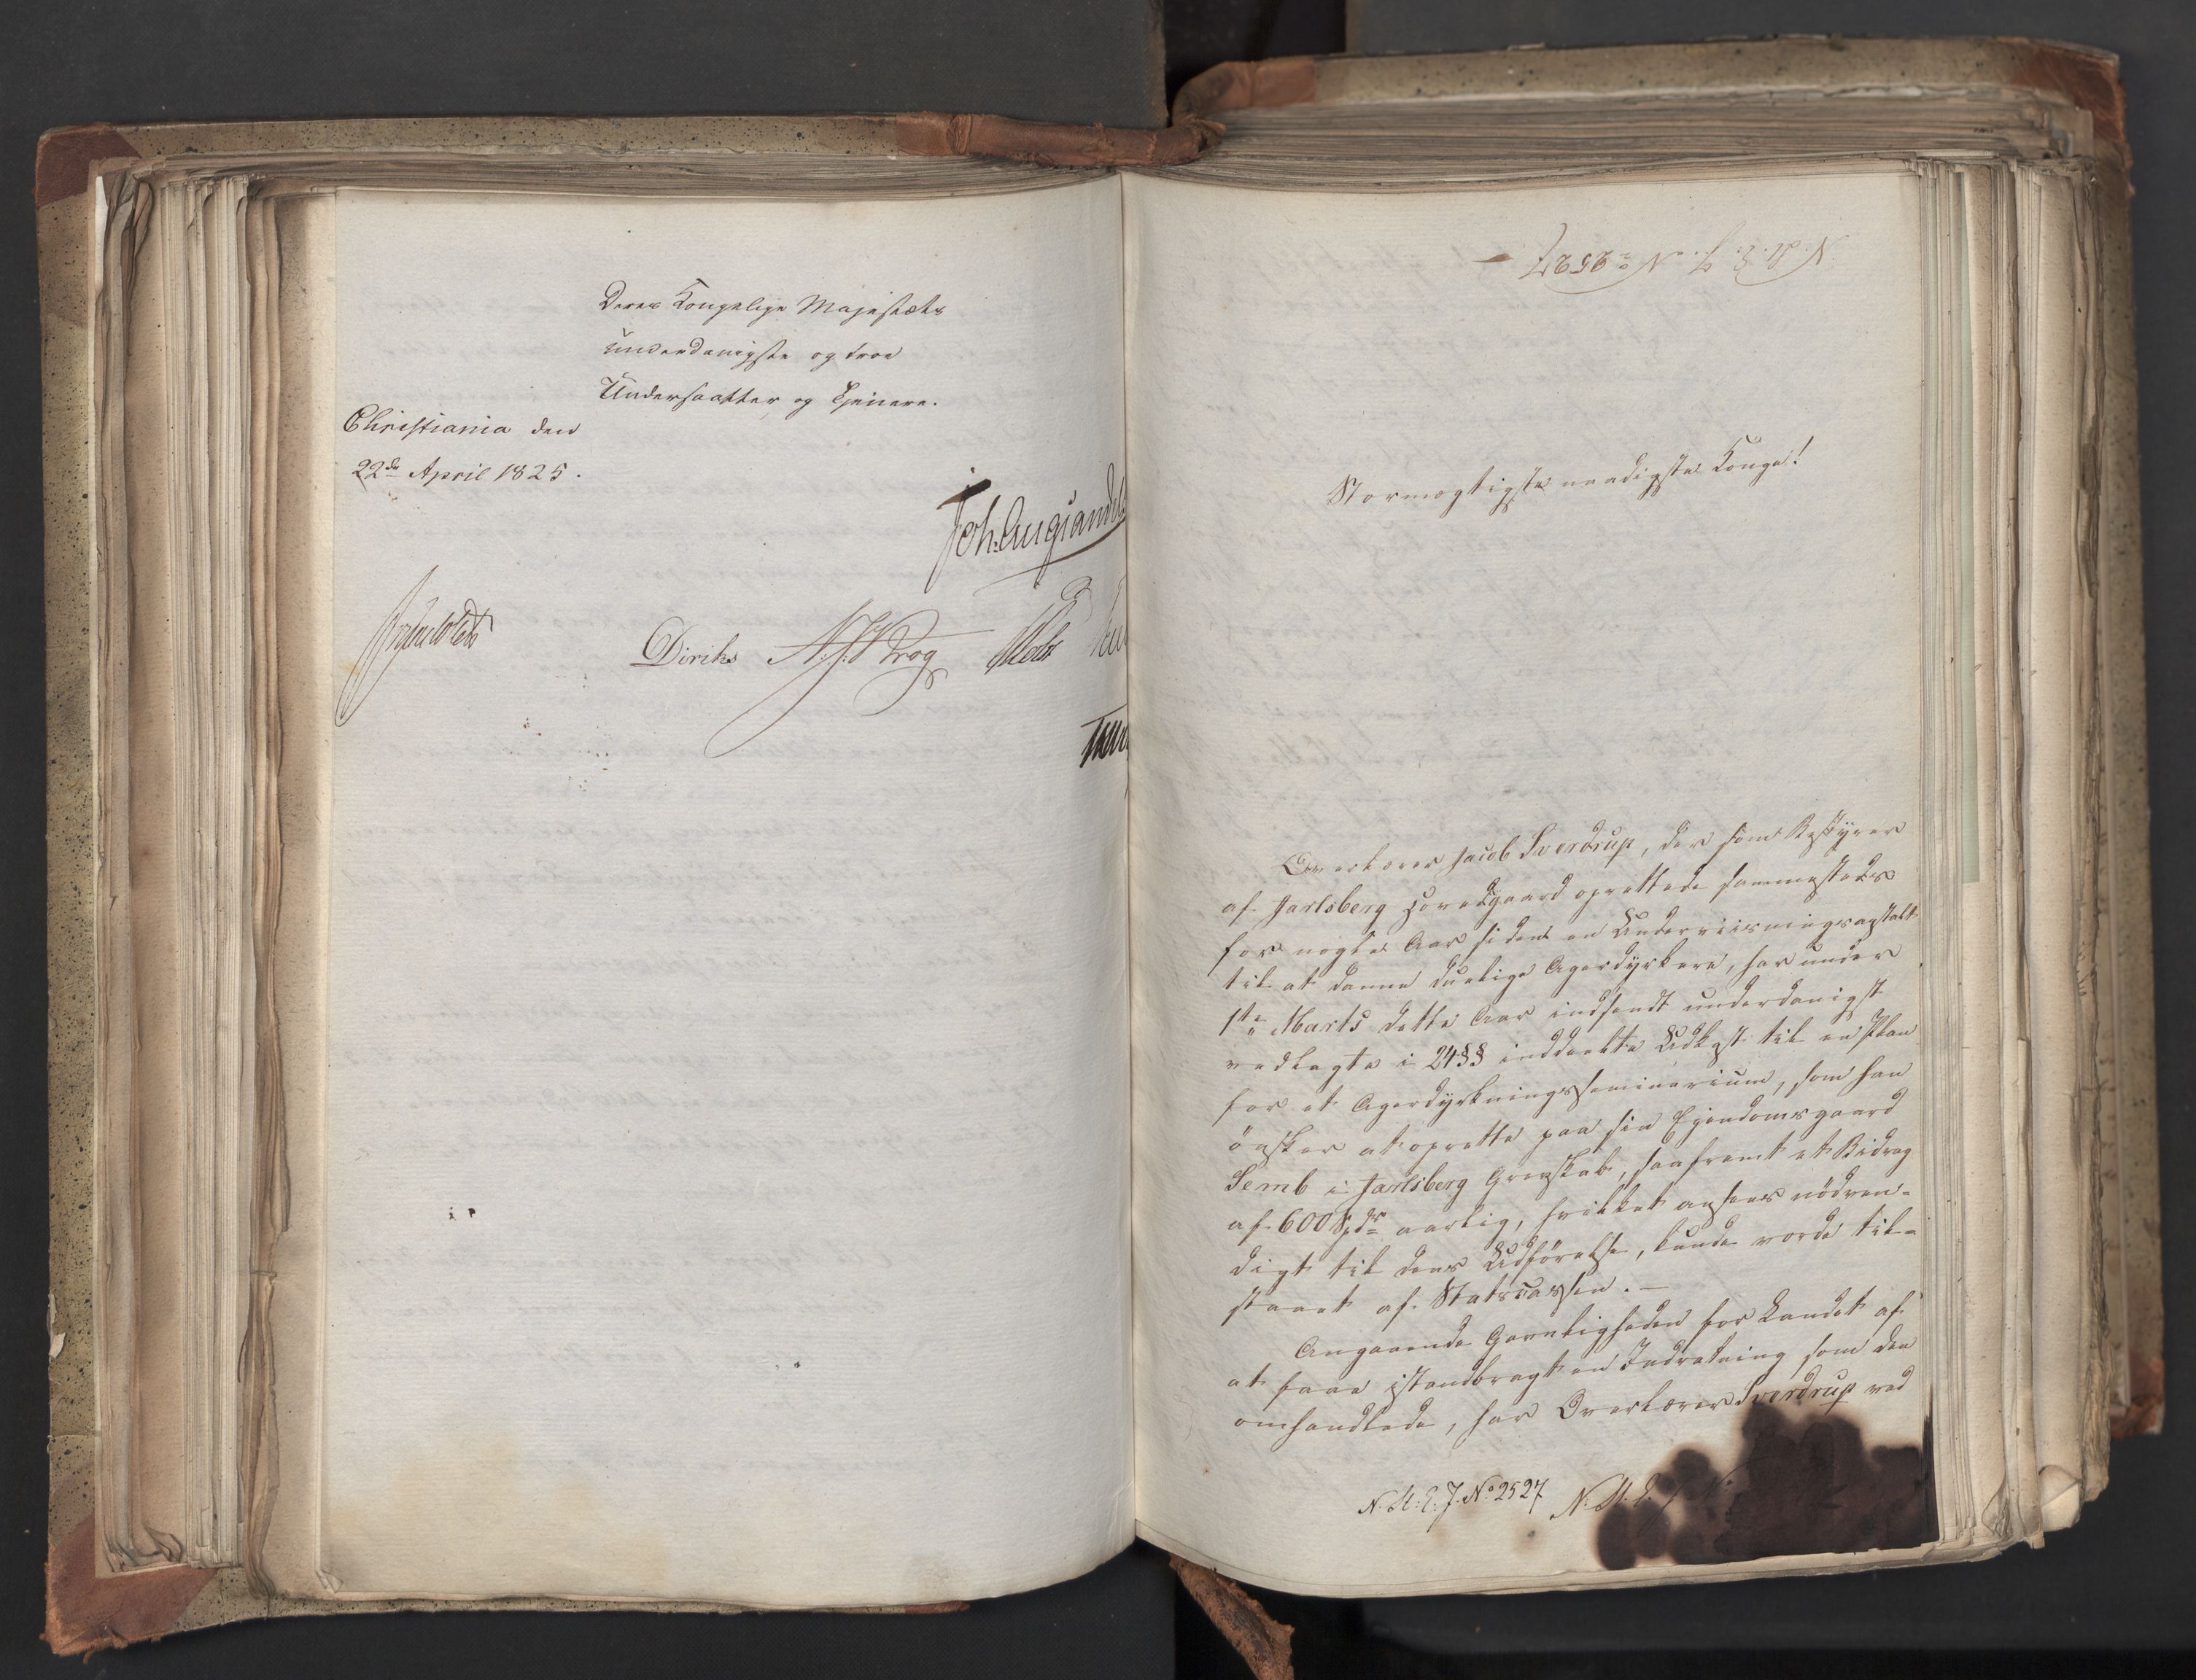 Deres Kongelige Majestæts
underdanigste og troe
Undersaatter og Tjenere.
Christiania den
22de April 1825.
Joh: Aug: Sandels
Diriks
N. J. Krog
N. St. E. J. No 2527
Stormægtigste naadigste Konge!
Overlærer Jacob Sverdrup, der som Bestyrer
af Jarlsberg Hovedgaard oprettede sammesteds
for nogle Aar siden en Underviisningsanstalt
til at danne duelige Agerdyrkere, har under
1ste Marts dette Aar indsendt underdanigst
vedlagte i 24 §§ inddeelte Udkast til en Plan
for et Agerdyrkningsseminarium, som han
ønsker at oprette paa sin Ejendomsgaard
Semb i Jarlsberg Grevskab, saafremt et Bidrag
af 600 Spdr aarlig, hvilket ansees nödven-
digt til dens Udförelse, kunde vorde til-
staaet af Statscassen. —
Angaaende Gavnligheden for Landet af
at faae istandbragt en Indretning som den
omhandlede, har Overlærer Sverdrup ved
N. St. E. J. No 2527 N. St. E. J. No